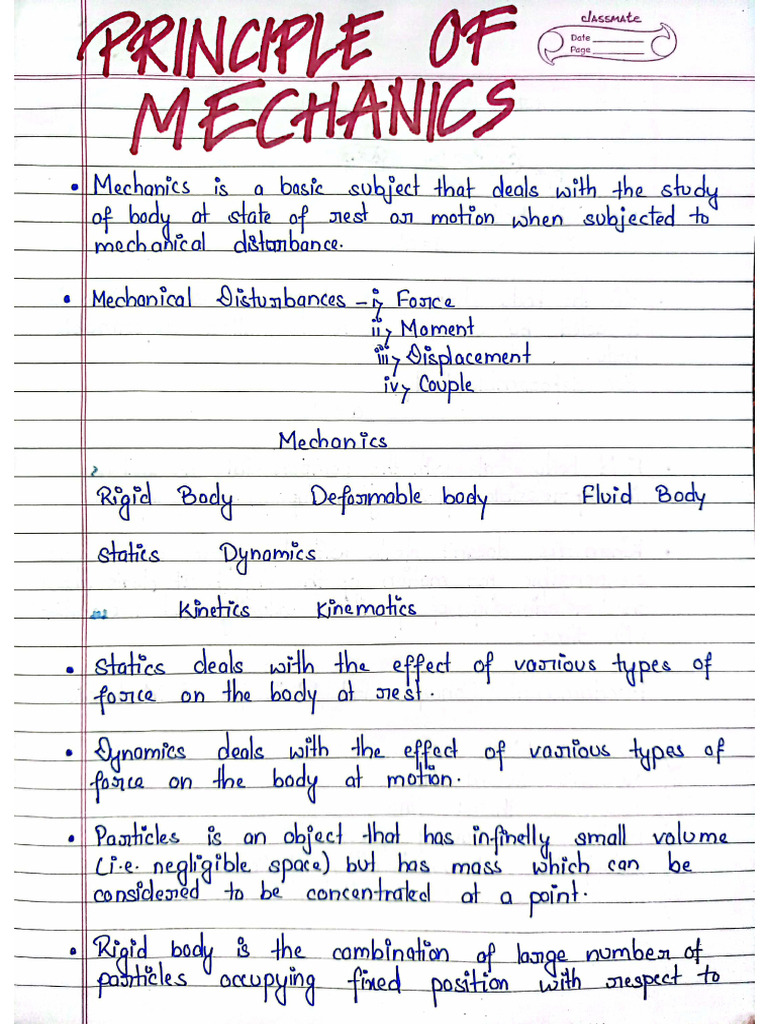 PRINCIPLE OF
MECHANICS
classmate
Date
Page
• Mechanics is a basic subject that deals with the study
of body at state of rest or motion when subjected to
mechanical disturbance.
• Mechanical Disturbances - i> Force
ii> Moment
iii> Displacement
iv> Couple
Mechanics
Rigid Body Deformable body Fluid Body
Statics Dynamics
Kinetics Kinematics
• Statics deals with the effect of various types of
force on the body at rest.
• Dynamics deals with the effect of various types of
force on the body at motion.
• Particles is an object that has infinelly small volume
(i.e. negligible space) but has mass which can be
considered to be concentrated at a point.
• Rigid body is the combination of large number of
particles occupying fixed position with respect to